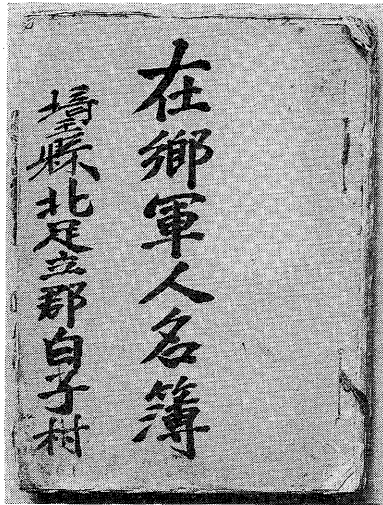 在郷軍人名簿
埼玉縣北足立郡白子村